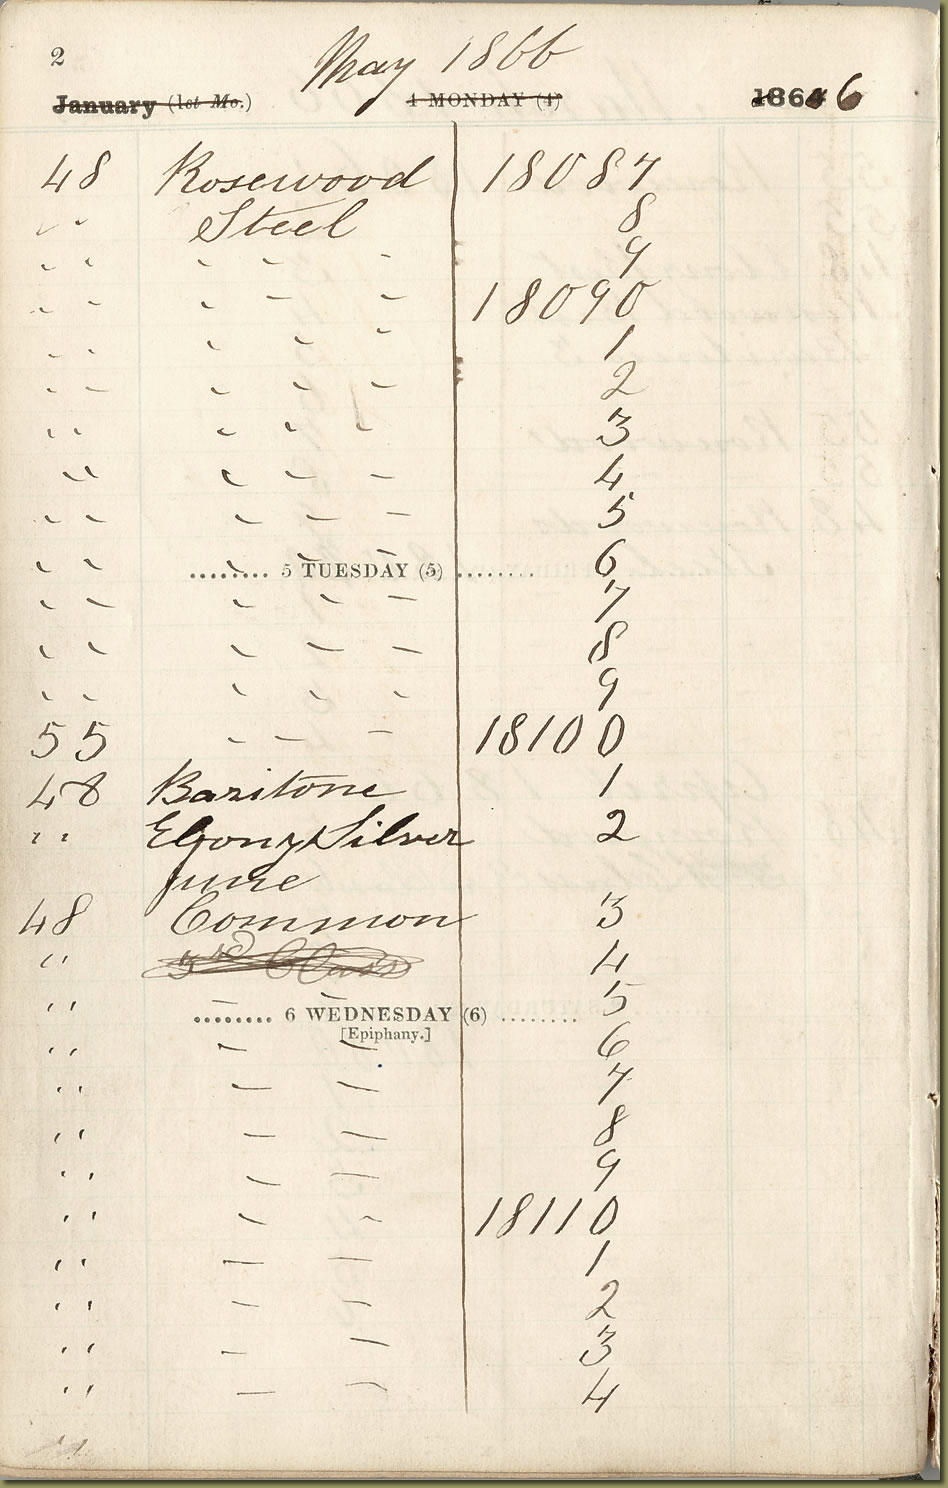 2
May 1866
January (1st Mo.) 4 MONDAY (4) 1864 6
48 Rosewood 18087
" Steel 8
" " " " " 9
" " " " " 18090
" " " " " 1
" " " " " 2
" " " " " 3
" " " " " 4
" " " " " 5
" " " " " 6
5 TUESDAY (5)
" " " " " 7
" " " " " 8
" " " " " 9
55 " " " 18100
48 Baritone 1
" " Ebony Silver 2
June
48 Common 3
" 3rd Class 4
" " " " 5
6 WEDNESDAY (6)
[Epiphany.]
" " " " 6
" " " " 7
" " " " 8
" " " " 9
" " " " 18110
" " " " 1
" " " " 2
" " " " 3
" " " " 4